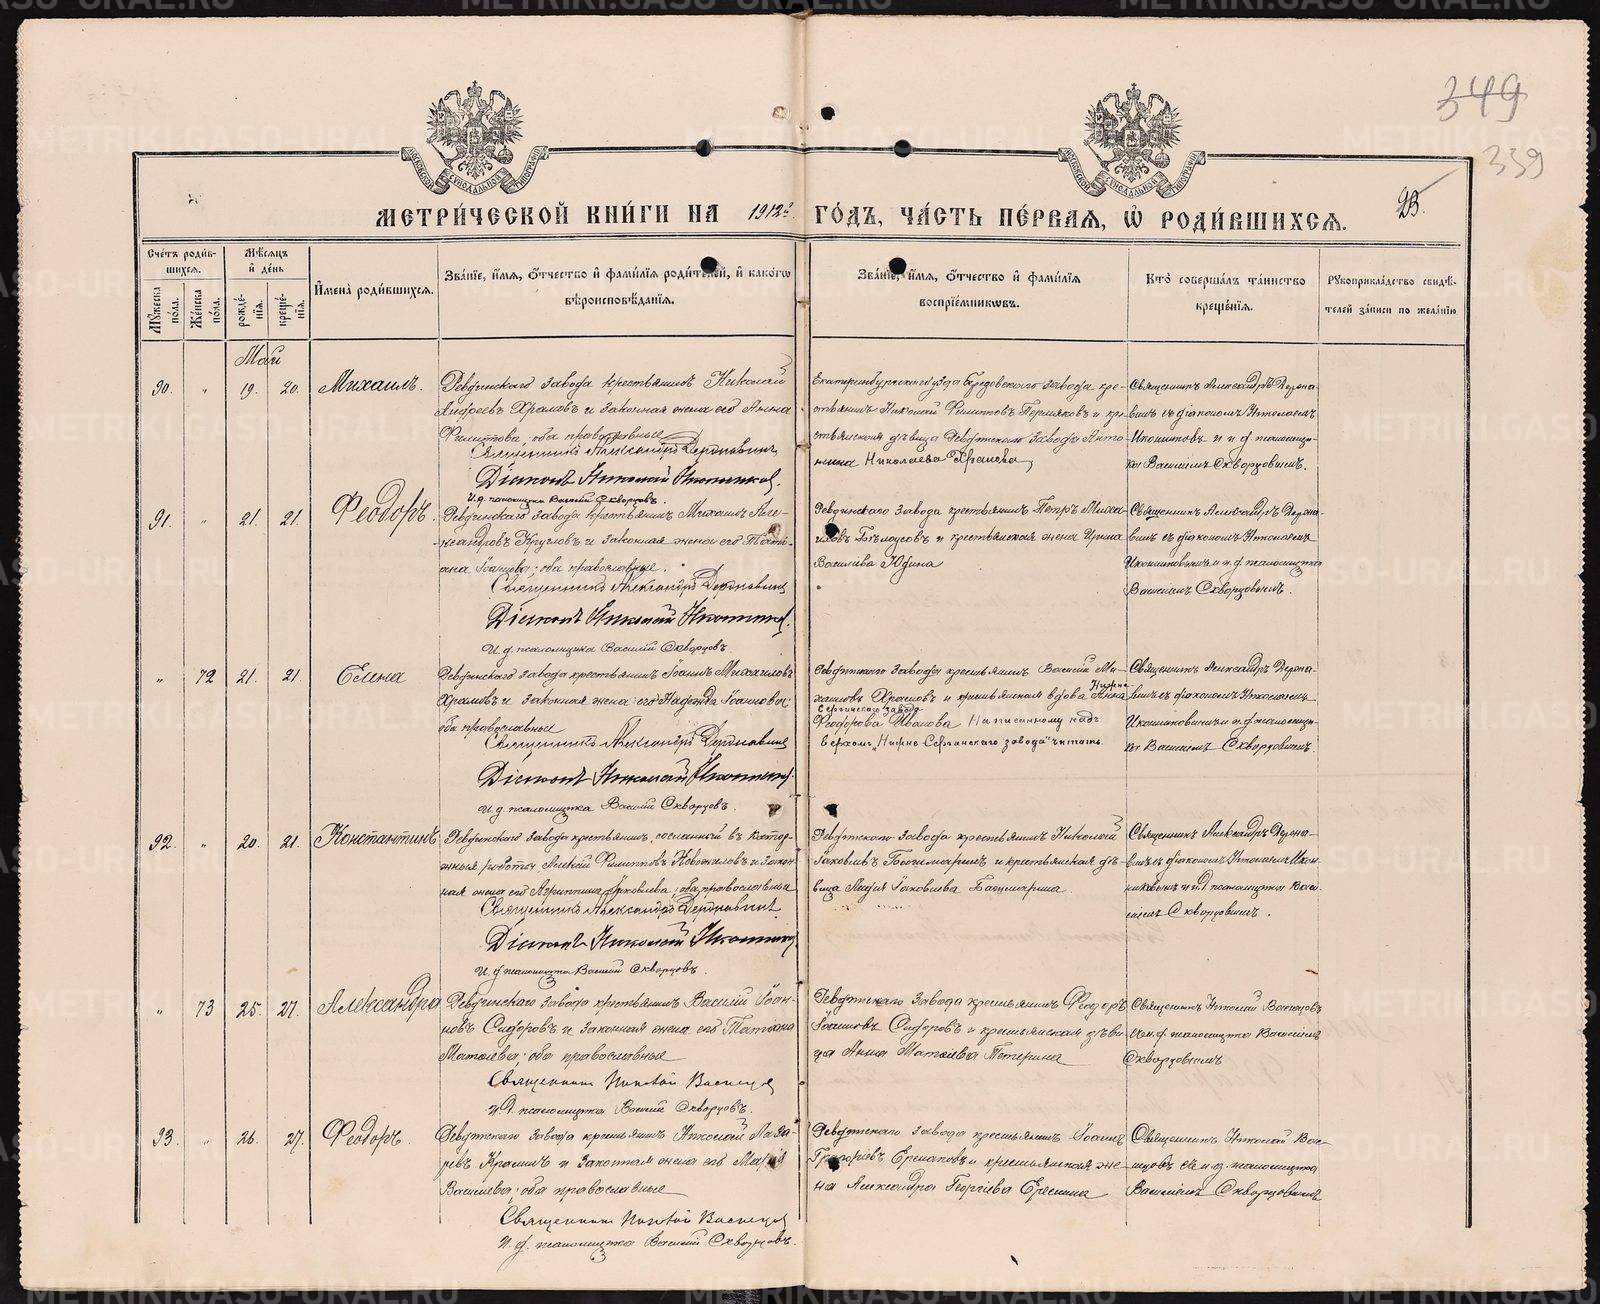 349
339
23.
МЕТРИ́ЧЕСКОЙ КНИ́ГИ НА 1912й ГО́ДЪ, ЧА́СТЬ ПЕ́РВАЯ, Ѿ РОДИ́ВШИХСЯ.
Сче́тъ роди́в-
шихся.
Мѣ́сяцъ
и́ де́нь
И҆мена̀ роди́вшихся.
Зва́нїе, и҆́мя, ѻ҆́тчество и҆ фами́лїя роди́телей, и҆ како́гѡ
вѣроисповѣ́данїя.
Зва́нїе, и҆́мя, ѻ҆́тчество и҆ фами́лїя
воспрїе́мниковъ.
Кто̀ соверша́лъ та́инство
креще́нїя.
Рукоприкла́дство свидѣ́-
телей за́писи по жела́нїю
Му́жеска по́ла.
Же́нска по́ла.
рожде́нїя.
креще́нїя.
Май
90. „ 19. 20. Михаилъ.
Ревдинскаго завода крестьянинъ Николай
Андреевъ Храмовъ и законная жена его Анна
Филиппова, оба православные
Священникъ Александръ Державинъ
Діаконъ Николай Иконниковъ.
И.д. псаломщика Василій Скворцовъ.
Екатеринбургскаго уѣзда завода кре-
стьянинъ Николай Филипповъ Пермяковъ и кре-
стьянская дѣвица Ревдинскаго завода Анто-
нина Николаева Храмова
Священникъ Александръ Держа-
винъ съ діакономъ Николаемъ
и и.д. псаломщи-
ка Василіемъ Скворцовымъ.
91. „ 21. 21. Феодоръ.
Ревдинскаго завода крестьянинъ Михаилъ Але-
ксандровъ Кругловъ и законная жена его Тать-
ана Іоаннова, оба православные.
Священникъ Александръ Державинъ
Діаконъ Николай Иконниковъ.
И.д. псаломщика Василій Скворцовъ.
Ревдинскаго завода крестьянинъ Петръ Миха-
иловъ Бѣлоусовъ и крестьянская жена Ирина
Василіева Юдина
Священникъ Александръ Держа-
винъ съ діакономъ Николаемъ
Иконниковымъ и и.д. псаломщика
Василіемъ Скворцовымъ.
„ 72 21. 21. Елена
Ревдинскаго завода крестьянинъ Іоаннъ Михаиловъ
Храмовъ и законная жена его Надежда Іоаннова,
оба православные
Священникъ Александръ Державинъ
Діаконъ Николай Иконниковъ.
И.д. псаломщика Василій Скворцовъ.
Ревдинскаго завода крестьянинъ Василій Ми-
хаиловъ Храмовъ и крестьянская вдова Нижне Анна
Сергинскаго завода
Феодорова Иванова Написанному надъ
верхомъ „Нижне Сергинскаго завода“ читать.
Священникъ Александръ Держа-
винъ съ діакономъ Николаемъ
Иконниковымъ и и.д. псаломщи-
ка Василіемъ Скворцовымъ.
92. „ 20. 21. Константинъ
Ревдинскаго завода крестьянинъ, сосланный въ каторж-
ныя работы, Алексѣй Филипповъ Новожиловъ и закон-
ная жена его Агриппина Яковлева, оба православные
Священникъ Александръ Державинъ.
Діаконъ Николай Иконниковъ
И.д. псаломщика Василій Скворцовъ.
Ревдинскаго завода крестьянинъ Николай
Іаковлевъ и крестьянская дѣ-
вица Лидія Іаковлева
Священникъ Александръ Держа-
винъ съ діакономъ Николаемъ Икон-
никовымъ и и.д. псаломщика Васи-
ліемъ Скворцовымъ.
„ 73 25. 27. Александра
Ревдинскаго завода крестьянинъ Василій Іоан-
новъ Сидоровъ и законная жена его Татіана
Матѳіева, оба православные
Священникъ Николай Васнецов
И.д. псаломщика Василій Скворцовъ.
Ревдинскаго завода крестьянинъ Феодоръ
Іоанновъ Сидоровъ и крестьянская дѣви-
ца Анна Матѳіева
Священникъ Николай Васнецовъ
и и.д. псаломщика Василіемъ
Скворцовымъ
93. „ 26. 27. Феодоръ.
Ревдинскаго завода крестьянинъ Николай Лаза-
ревъ и законная жена его Марія
Василіева, оба православные
Священникъ Николай Васнецов
И.д. псаломщика Василій Скворцовъ.
Ревдинскаго завода крестьянинъ Іоаннъ
Григоріевъ и крестьянская же-
на Александра Георгіева
Священникъ Николай Вас-
нецовъ съ и.д. псаломщика
Василіемъ Скворцовымъ
METRIKI.GASO-URAL.RU